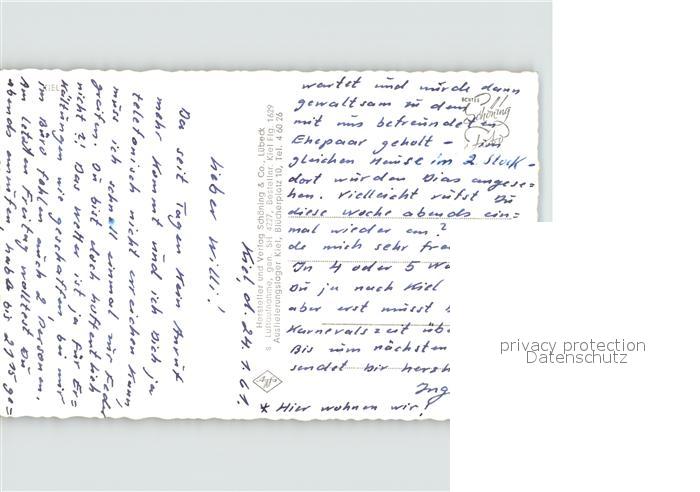 Kiel, d. 24.1.61.
Lieber Willi!
Da seit Tagen kein Anruf
mehr kommt und ich Dich ja
telefonisch nicht erreichen kann,
muss ich schnell einmal zur Feder
greifen. Du bist doch hoffentlich
nicht Das Wetter ist ja für Er=
kältungen wie geschaffen, bei mir
im Büro fehlen auch 2 Personen.
Am letzten Freitag wolltest Du
abends anrufen, habe bis 21.15 ge=
wartet und wurde dann
gewaltsam zu dem
mit uns befreundeten
Ehepaar geholt - im
gleichen Hause im 2. Stock -
dort wurden Dias angese=
hen. Vielleicht rufst Du
diese Woche abends ein=
mal wieder an?
de mich sehr freu
In 4 oder 5 Wo
Du ja nach Kiel
aber erst musst
Karnevalszeit übe
Bis zum nächsten
sendet Dir herzli
Ing
* Hier wohnen wir!
Hersteller und Verlag Schöning & Co., Lübeck
Luftaufnahme, gen. SH 4227, Bestellnr. Kiel Lg. 1629
Auslieferungslager Kiel, Blücherplatz 10, Tel. 4 60 26
KIEL
ECHTES
Schöning
Foto
privacy protection
Datenschutz